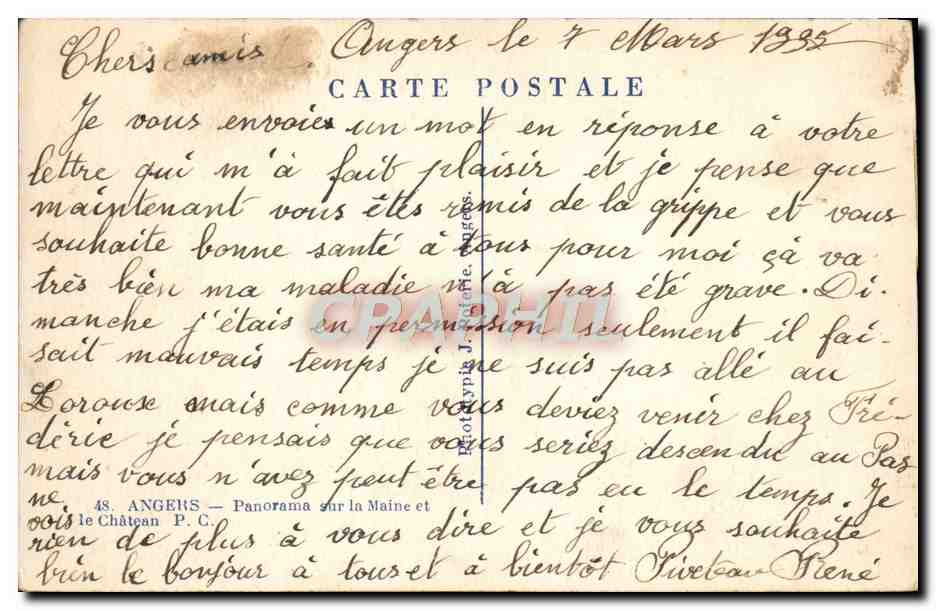 Chers amis. Angers le 7 Mars 1935
CARTE POSTALE
Je vous envoies un mot en réponse à votre
lettre qui m'à fait plaisir et je pense que
maintenant vous êtes remis de la grippe et vous
souhaite bonne santé à tous pour moi çà va
très bien ma maladie n'à pas été grave. Di-
manche j'étais en permission seulement il fai-
sait mauvais temps je ne suis pas allé au
Loroux mais comme vous deviez venir chez Fré-
déric je pensais que vous seriez descendu au Pas
mais vous n'avez peut être pas eu le temps. Je
ne vois
rien de plus à vous dire et je vous souhaite
bien le bonjour à tous et à bientôt Piveteau René
48. ANGERS — Panorama sur la Maine et
le Château P. C.
Phototypie J. Angers.
CPAPHIL